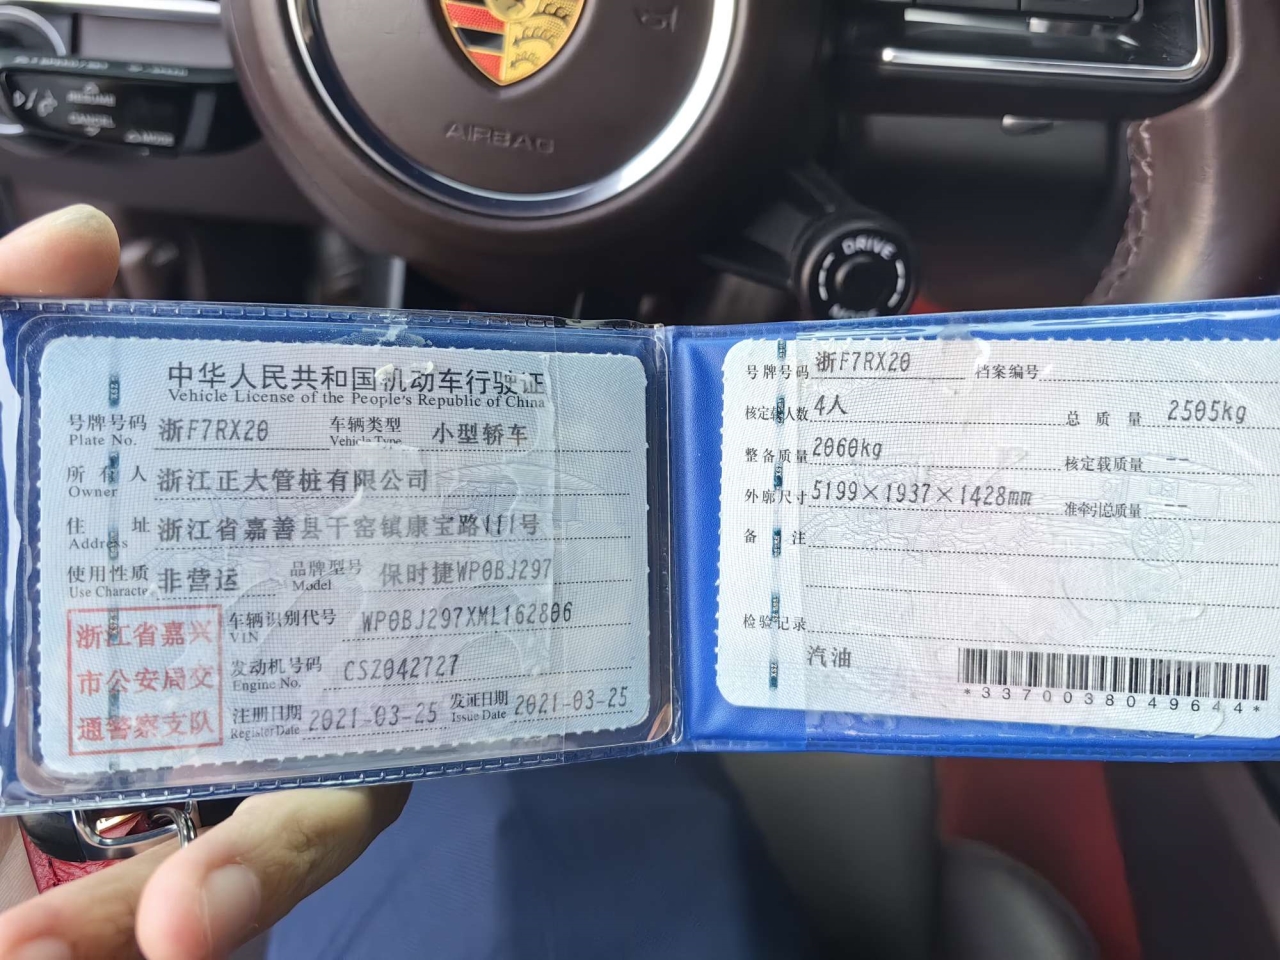 RESUME
CANCEL
MODE
AIRBAG
DRIVE
中华人民共和国机动车行驶证
Vehicle License of the People's Republic of China
号牌号码 浙F7RX20 车辆类型 小型轿车
Plate No. Vehicle Type
所有人 浙江正大管桩有限公司
Owner
住址 浙江省嘉善县干窑镇康宝路111号
Address
使用性质 非营运 品牌型号 保时捷WP0BJ297
Use Characte Model
浙江省嘉兴
市公安局交
通警察支队
车辆识别代号 WP0BJ297XML162806
VIN
发动机号码 CSZ042727
Engine No.
注册日期 2021-03-25 发证日期 2021-03-25
Register Date Issue Date
号牌号码 浙F7RX20 档案编号
核定载人数 4人 总质量 2505kg
整备质量 2060kg 核定载质量 --
外廓尺寸 5199×1937×1428mm 准牵引总质量 --
备注
检验记录
汽油
*3370038049644*